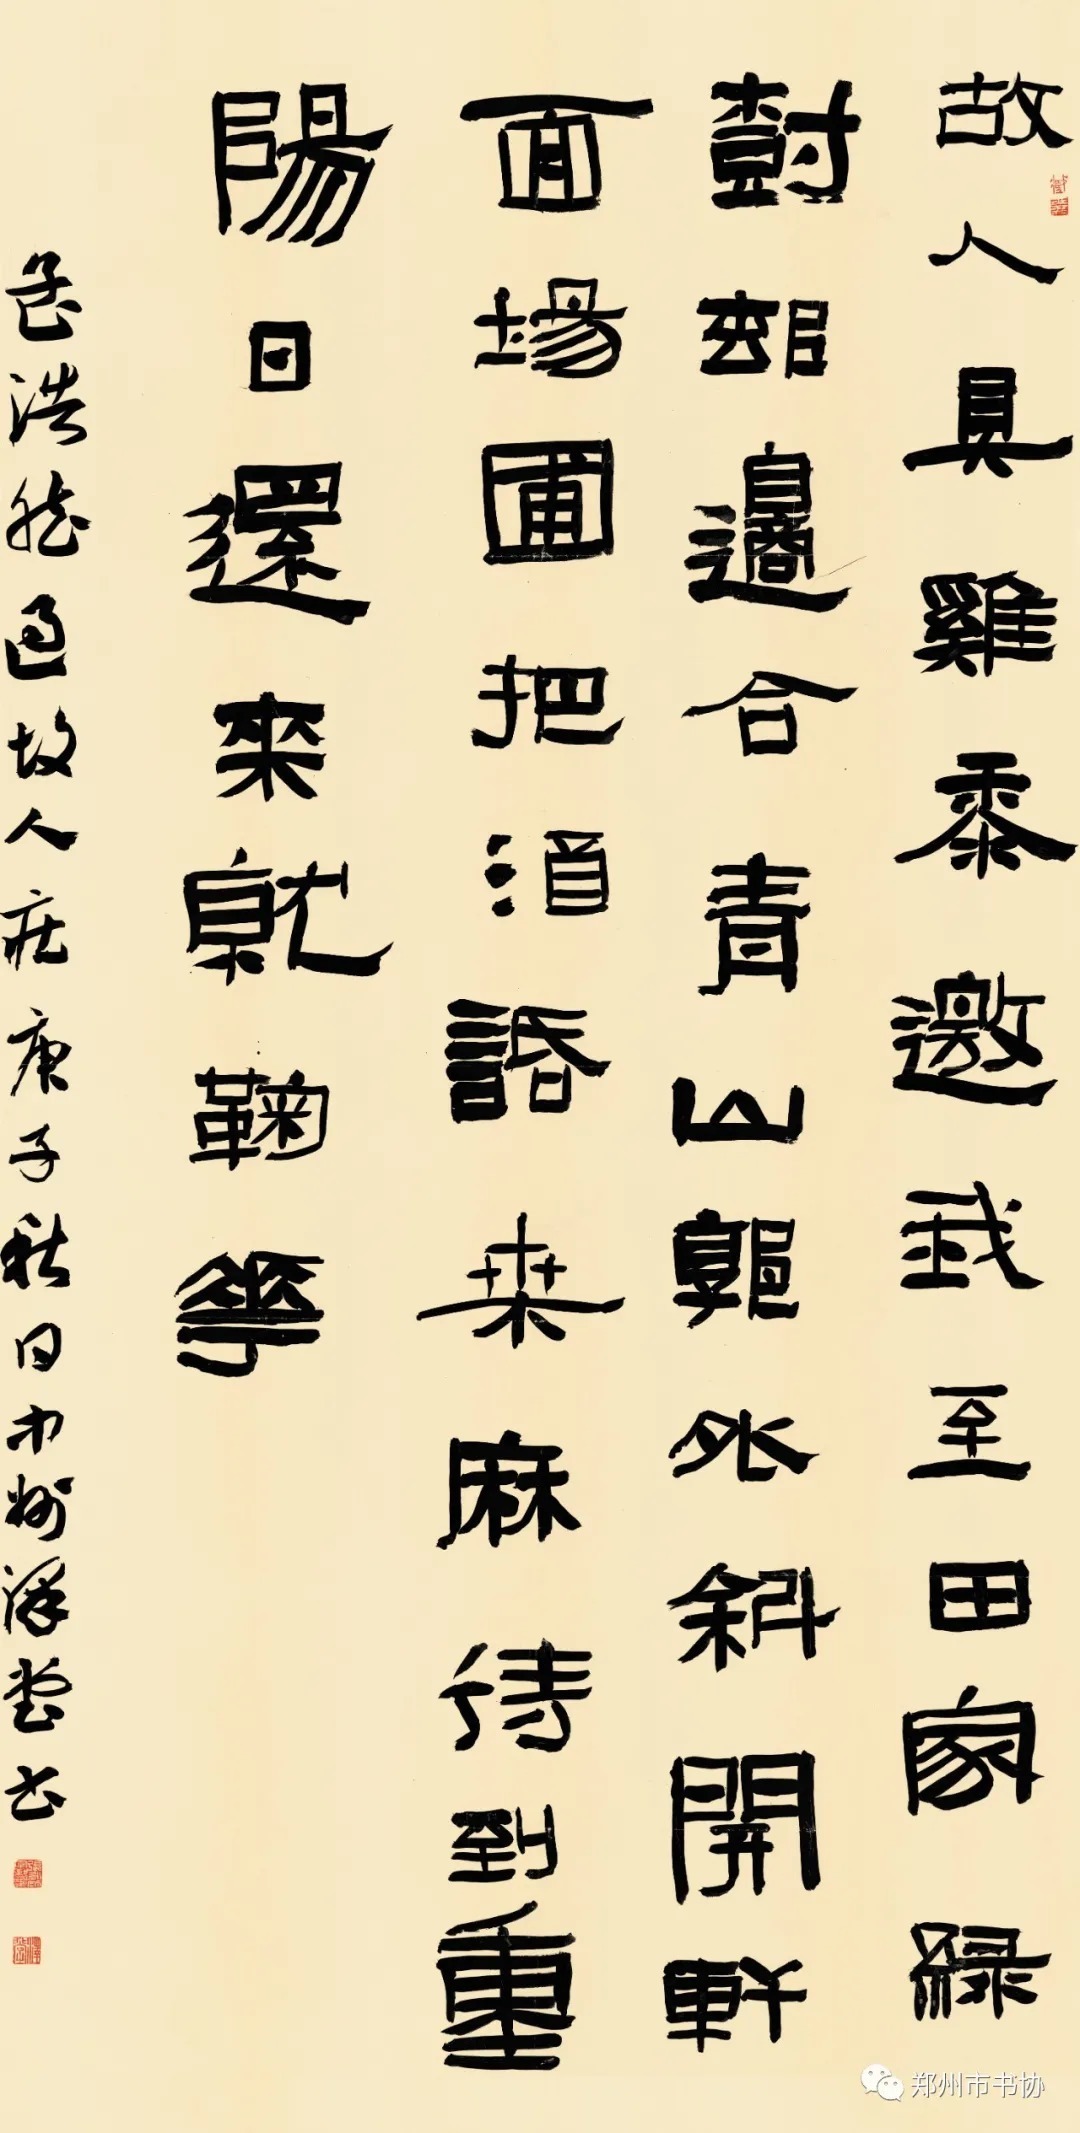 故人具雞黍邀我至田家綠
樹邨邊合青山郭外斜開軒
面場圃把酒話桑麻待到重
陽日還來就鞠華
孟浩然過故人莊庚子秋日中州澤堂书
郑州市书协